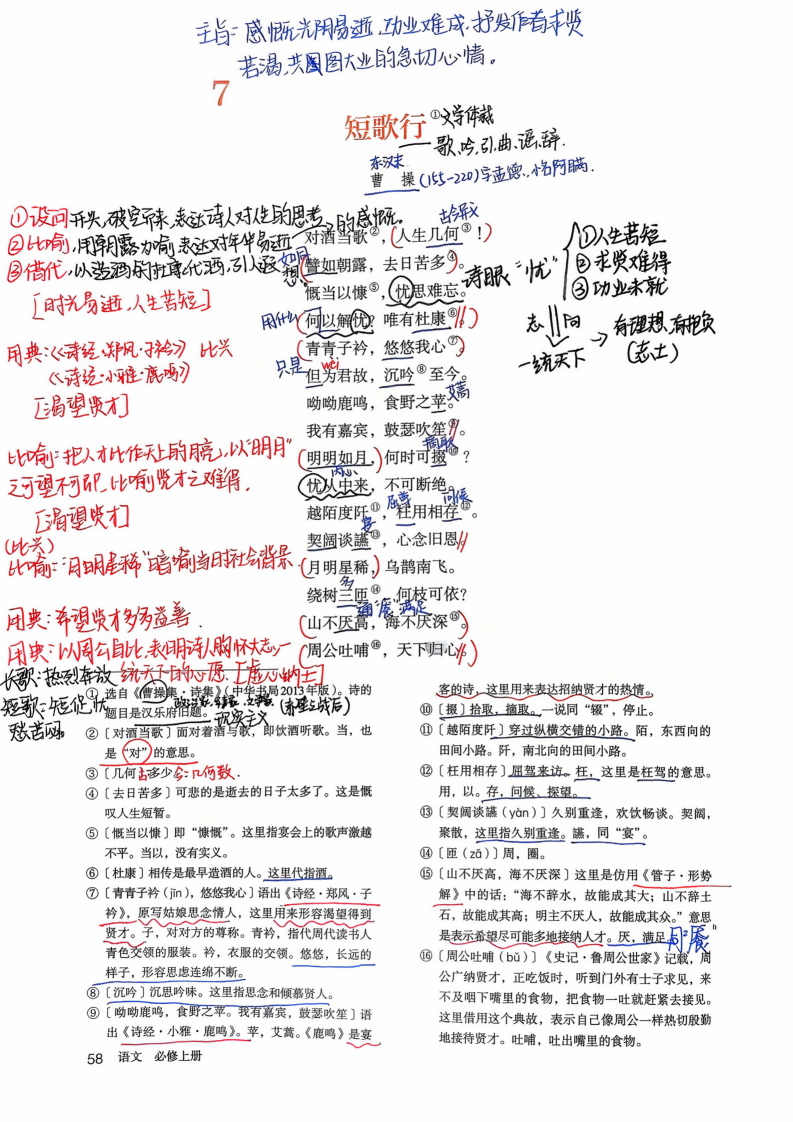 主旨：感慨光阴易逝,功业难成,抒发作者求贤
若渴,共图大业的急切心情。
7
短歌行①文学体裁
歌、吟、引、曲、谣、辞.
东汉末
曹 操(155-220)字孟德,小名阿瞒.
①设问开头,破空而来,表达诗人对人生的思考、的感慨。
②比喻,用朝露为喻表达对年华易逝
③借代,以造酒的杜康代酒,引人遐想。
[时光易逝,人生苦短]
古今异义
对酒当歌②，人生几何③！
如同
譬如朝露，去日苦多④。
慨当以慷⑤，忧思难忘。
用什么
何以解忧？唯有杜康⑥。
诗眼“忧”
①人生苦短
②求贤难得
③功业未就
志向
一统天下
有理想、有抱负
(志士)
用典：《诗经·郑风·子衿》 比兴
《诗经·小雅·鹿鸣》
[渴望贤才]
青青子衿，悠悠我心⑦。
只是 wèi
但为君故，沉吟⑧至今。
艾蒿
呦呦鹿鸣，食野之苹。
我有嘉宾，鼓瑟吹笙⑨。
比喻：把人才比作天上的月亮,以“明月”
可望不可即,比喻贤才之难得.
[渴望贤才]
摘取
明明如月，何时可掇⑩？
内心
忧从中来，不可断绝。
屈尊 问候
越陌度阡⑪，枉用相存⑫。
宴
契阔谈䜩⑬，心念旧恩。
(比兴)
比喻：“月明星稀”暗喻当时社会背景.
月明星稀，乌鹊南飞。
多
绕树三匝⑭，何枝可依？
用典：希望贤才多多益善.
通“餍”满足
山不厌高，海不厌深⑮。
用典：以周公自比,表明诗人胸怀大志,一
统天下的心愿 [虚心纳士]
周公吐哺⑯，天下归心。
长歌：热烈奔放
短歌：短促忧
愁苦闷。
①选自《曹操集·诗集》（中华书局2013年版）。诗的
题目是汉乐府旧题。
现实主义
(赤壁之战后)
②〔对酒当歌〕面对着酒与歌，即饮酒听歌。当，也
是“对”的意思。
③〔几何〕多少。
古 今：几何数.
④〔去日苦多〕可悲的是逝去的日子太多了。这是慨
叹人生短暂。
⑤〔慨当以慷〕即“慷慨”。这里指宴会上的歌声激越
不平。当以，没有实义。
⑥〔杜康〕相传是最早造酒的人。这里代指酒。
⑦〔青青子衿（jīn），悠悠我心〕语出《诗经·郑风·子
衿》，原写姑娘思念情人，这里用来形容渴望得到
贤才。子，对对方的尊称。青衿，指代周代读书人
青色交领的服装。衿，衣服的交领。悠悠，长远的
样子，形容思虑连绵不断。
⑧〔沉吟〕沉思吟味。这里指思念和倾慕贤人。
⑨〔呦呦鹿鸣，食野之苹。我有嘉宾，鼓瑟吹笙〕语
出《诗经·小雅·鹿鸣》。苹，艾蒿。《鹿鸣》是宴
客的诗，这里用来表达招纳贤才的热情。
⑩〔掇〕拾取，摘取。一说同“辍”，停止。
⑪〔越陌度阡〕穿过纵横交错的小路。陌，东西向的
田间小路。阡，南北向的田间小路。
⑫〔枉用相存〕屈驾来访。枉，这里是枉驾的意思。
用，以。存，问候、探望。
⑬〔契阔谈䜩（yàn）〕久别重逢，欢饮畅谈。契阔，
聚散，这里指久别重逢。䜩，同“宴”。
⑭〔匝（zā）〕周，圈。
⑮〔山不厌高，海不厌深〕这里是仿用《管子·形势
解》中的话：“海不辞水，故能成其大；山不辞土
石，故能成其高；明主不厌人，故能成其众。”意思
是表示希望尽可能多地接纳人才。厌，满足。
同“餍”
⑯〔周公吐哺（bǔ）〕《史记·鲁周公世家》记载，周
公广纳贤才，正吃饭时，听到门外有士子求见，来
不及咽下嘴里的食物，把食物一吐就赶紧去接见。
这里借用这个典故，表示自己像周公一样热切殷勤
地接待贤才。吐哺，吐出嘴里的食物。
58 语文 必修上册